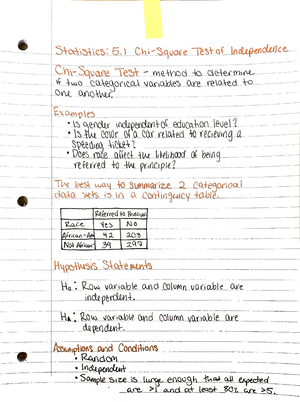 Statistics: 5.1 Chi-Square Test of Independence
Chi-Square Test - method to determine
if two categorical variables are related to
one another.
Examples
• Is gender independent of education level?
• Is the color of a car related to recieving a
speeding ticket?
• Does race affect the likelihood of being
referred to the principle?
The best way to summarize 2 categorical
data sets is in a contingency table.
Referred to Principal
Race Yes No
African-Am 42 203
Not African 39 297
Hypothesis Statements
H₀: Row variable and column variable are
independent.
Hₐ: Row variable and column variable are
dependent.
Assumptions and Conditions
• Random
• Independent
• Sample size is large enough that all expected
are >1 and at least 80% are >5.